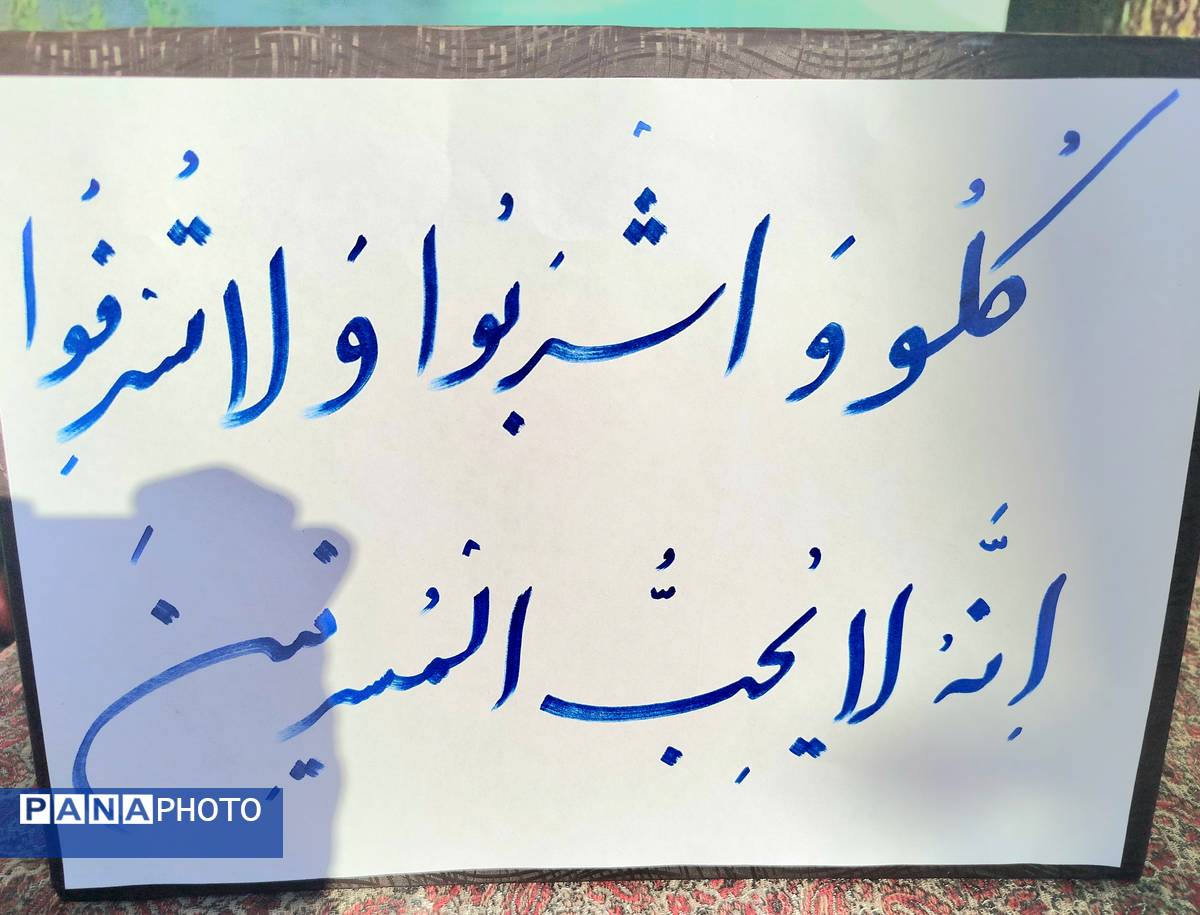 کُلُو وَ اشْرَبُوا وَ لا تُسْرِفُوا
اِنَّهُ لا یُحِبُّ الْمُسْرِفینَ
PANAPHOTO